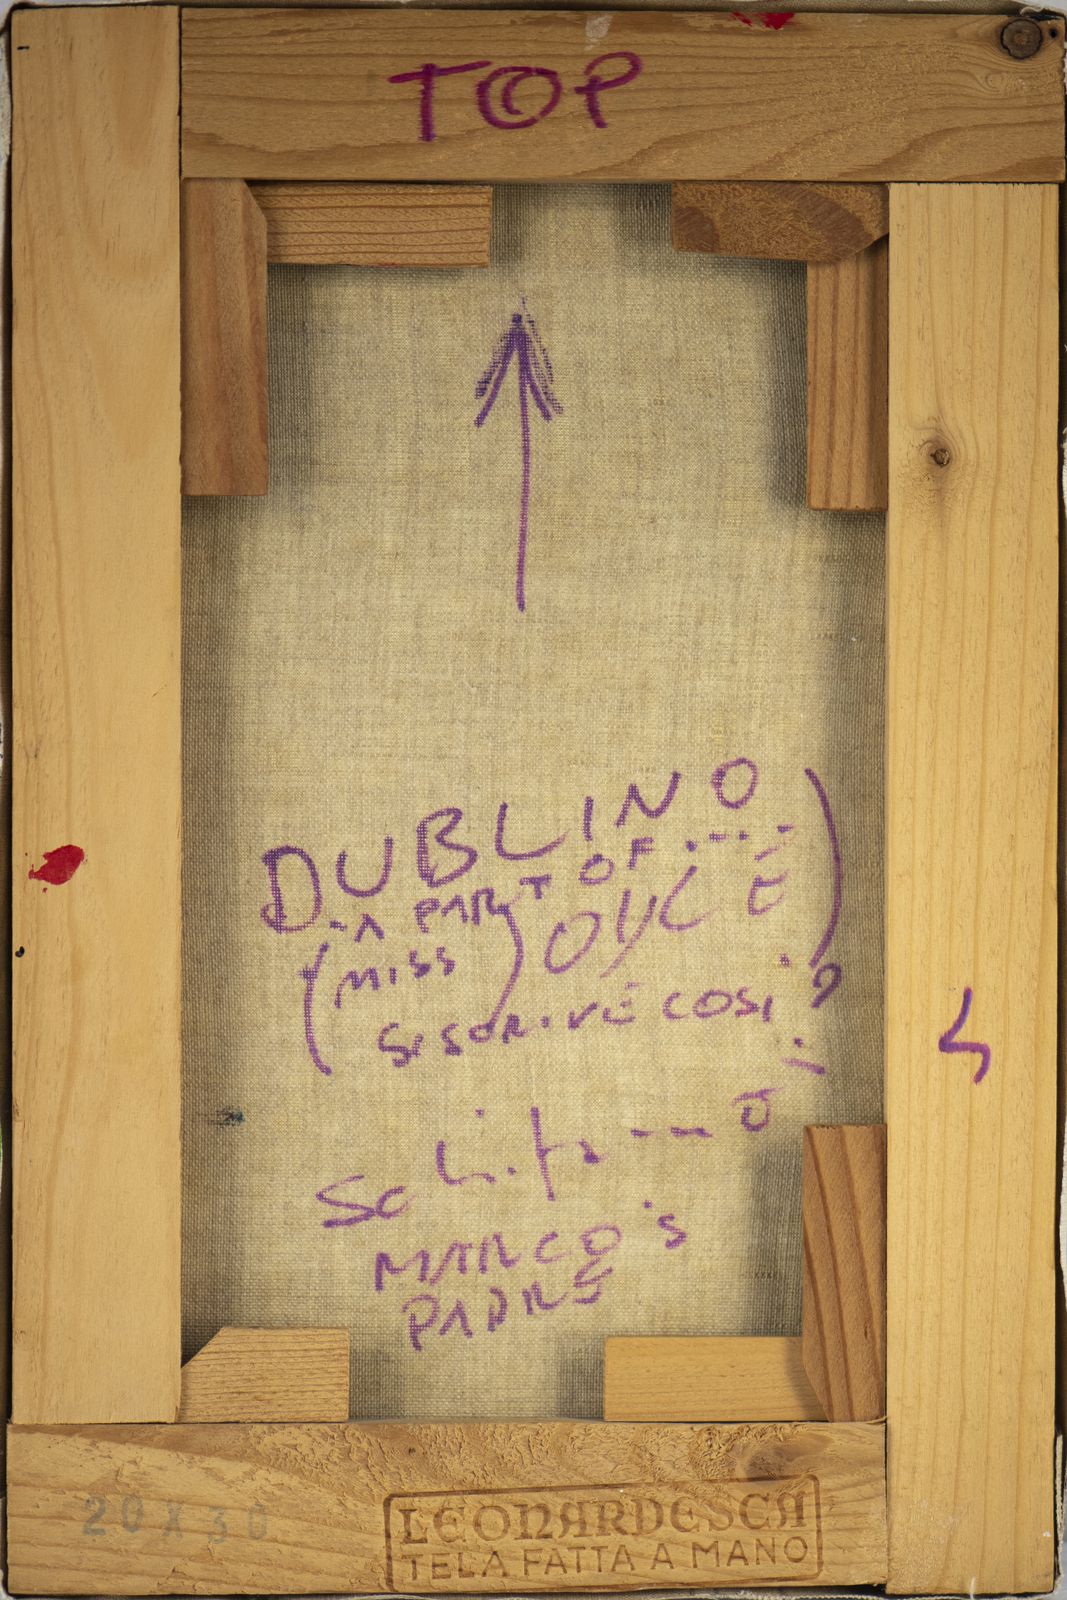 TOP
DUBLINO
- A PART OF ....
(MISS) OYCE)
SI SCRIVE COSI ?
MARCO'S
PADRE
20X30
LEONARDESCA
TELA FATTA A MANO